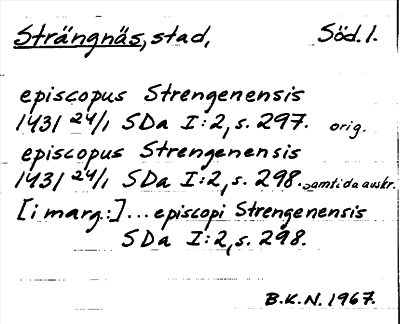 Strängnäs, stad, Söd. 1.
episcopus Strengenensis
1431 24/1 SDa I:2, s. 297. orig.
episcopus Strengenensis
1431 24/1 SDa I:2, s. 298. samtida avskr.
[i marg.:]... episcopi Strengenensis
SDa I:2, s. 298.
B.K.N. 1967.